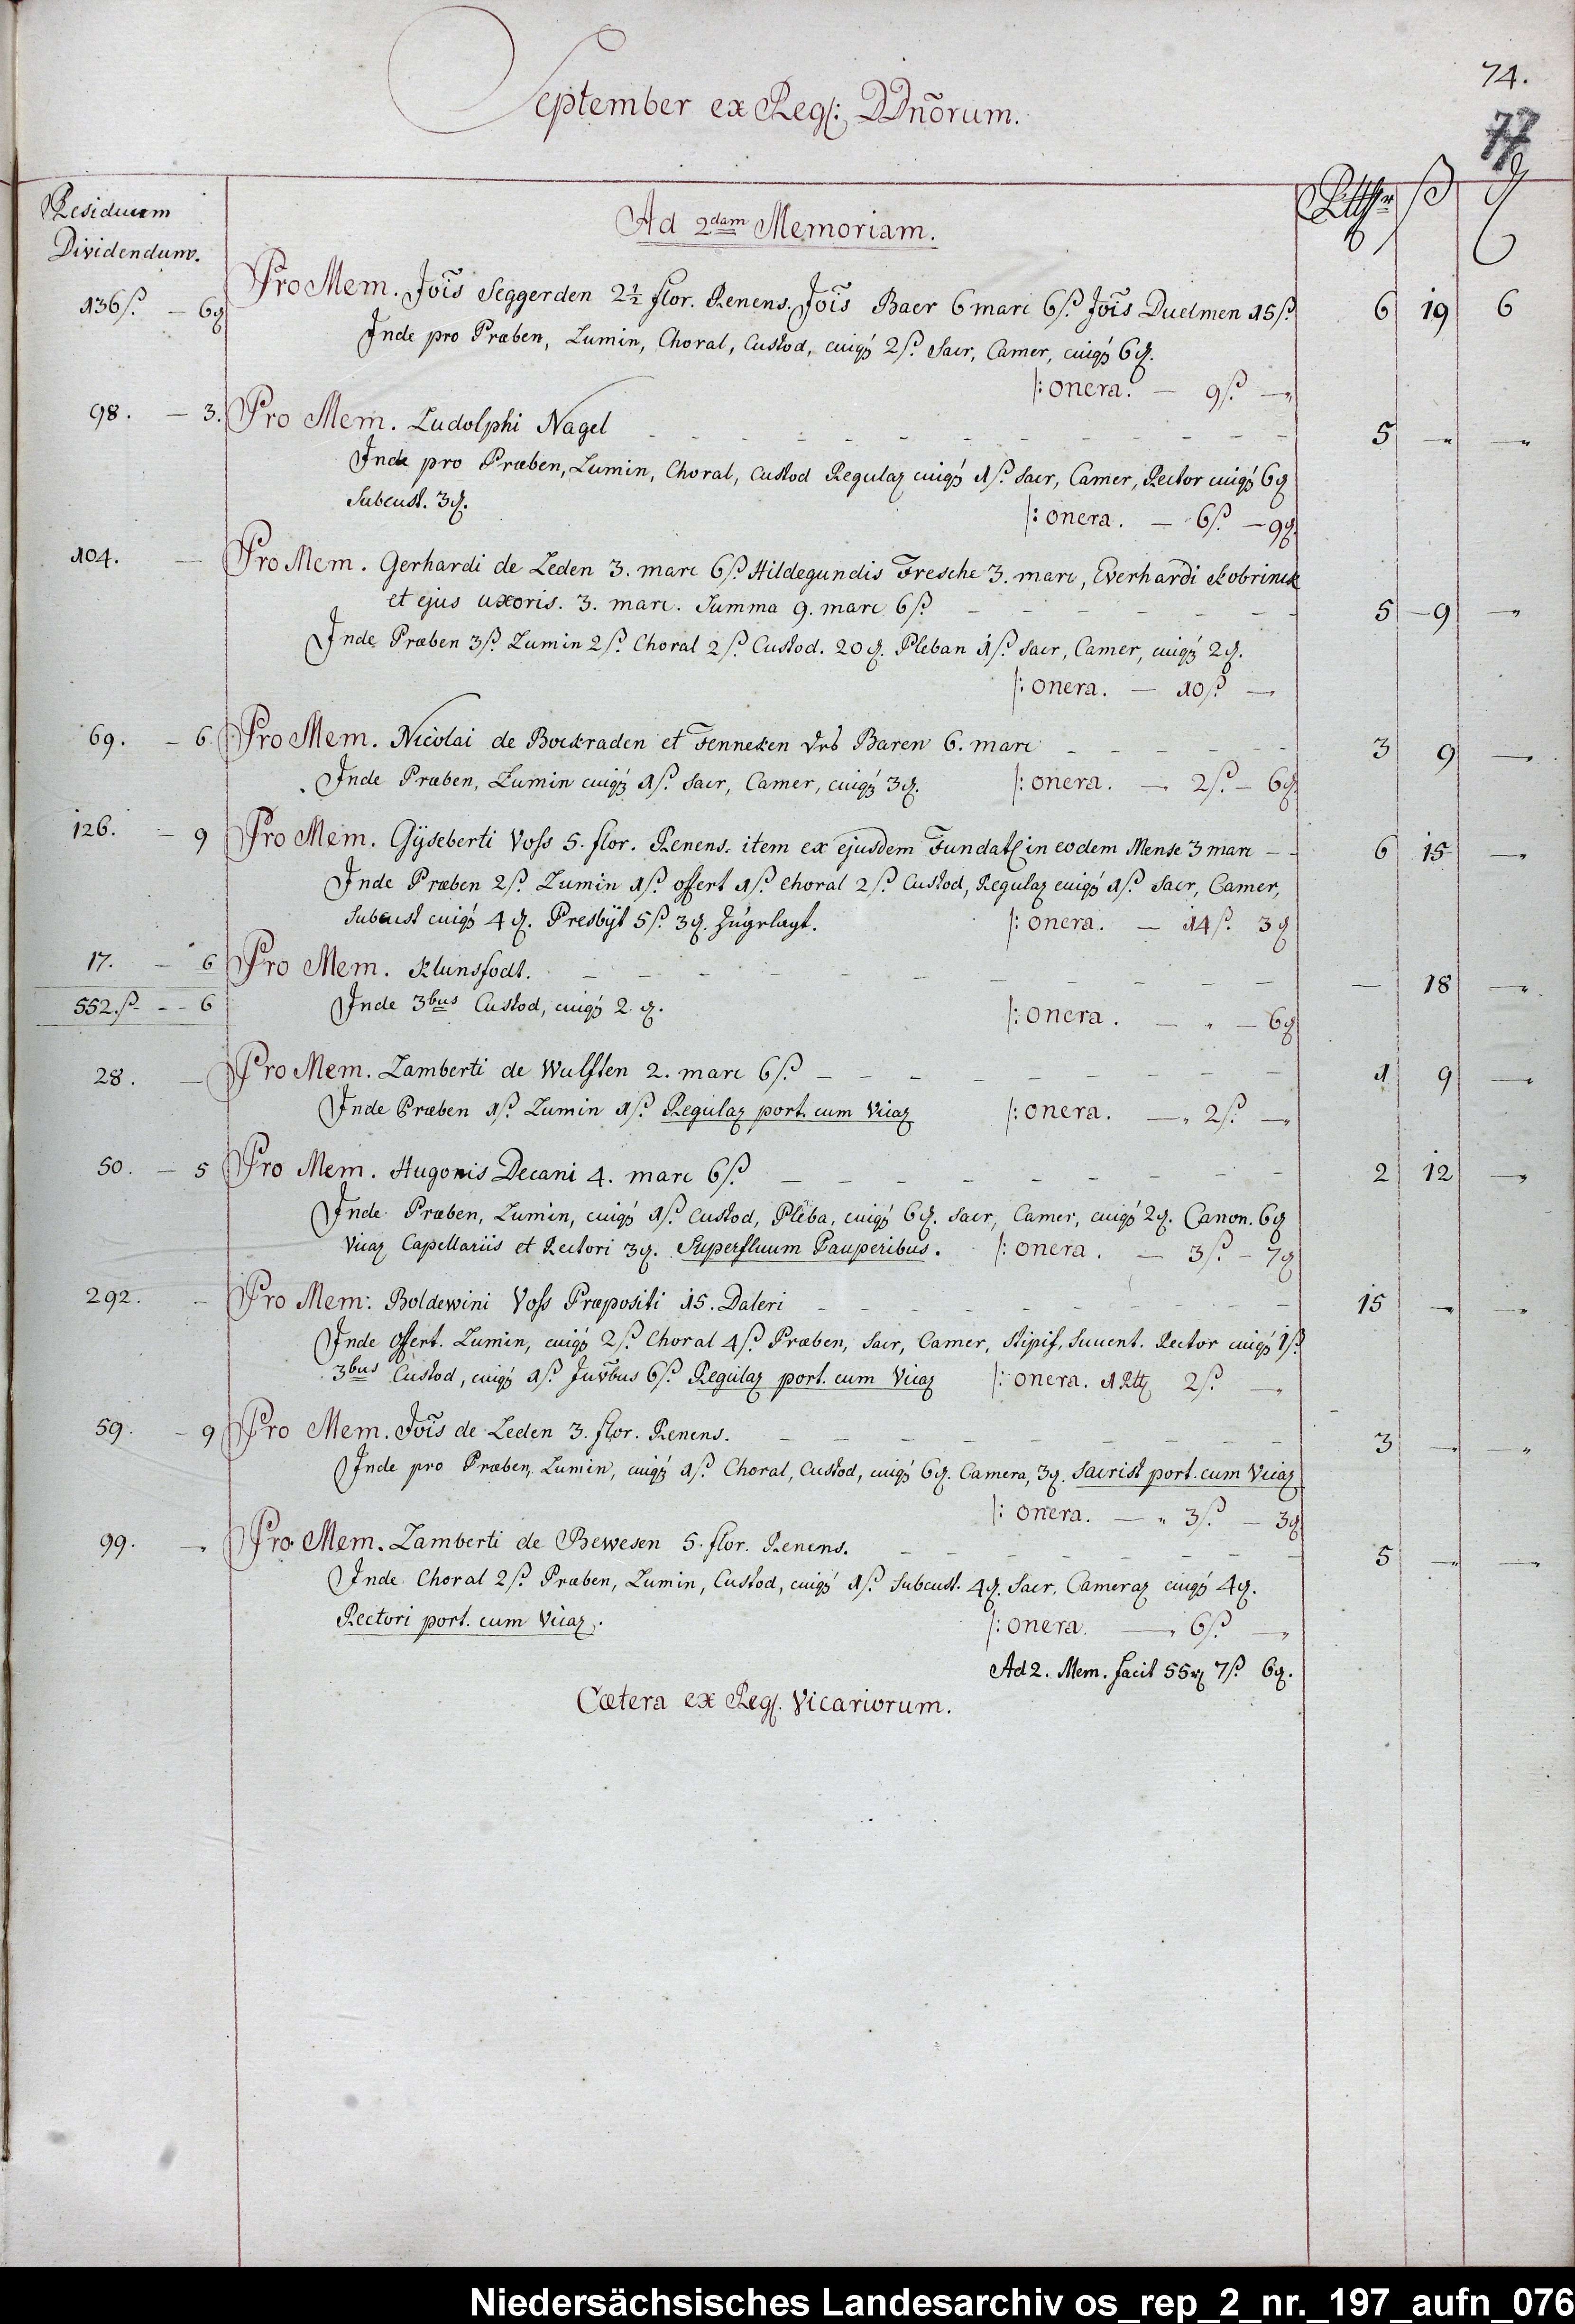 74.
77
September ex Reg: DDnõrum.
Residuum
Dividendum.
Rtthlr ß ₰
Ad 2dam Memoriam.
136ß. – 6₰ Pro Mem. Jois Seggerden 2½ flor. Renens. Jois Baer 6 marc 6ß. Jois Duelmen 15ß. 6 19 6
Inde pro Præben, Lumin, Choral, Custod, cuiq; 2ß. Sacr, Camer, cuiq; 6₰.
/: onera. – 9ß. –
98. – 3. Pro Mem. Ludolphi Nagel – – – 5 – –
Inde pro Præben, Lumin, Choral, Custod Regulaz cuiq; 1ß. Sacr, Camer, Rector cuiq; 6₰
Subcust. 3₰.
/: onera. – 6ß. – 9₰.
104. – Pro Mem. Gerhardi de Leden 3. marc 6ß. Hildegundis Fresche 3. marc, Everhardi Kobrinck
et ejus uxoris. 3. marc. Summa 9. marc 6ß. – – – 5 – 9 –
Inde Præben 3ß. Lumin 2ß. Choral 2ß. Custod. 20₰. Pleban 1ß. Sacr, Camer, cuiq; 2₰.
/: onera. – 10ß. –
69. – 6. Pro Mem. Nicolai de Bockraden et Fenneken Baren 6. marc – – – 3 9 –
Inde Præben, Lumin cuiq; 1ß. Sacr, Camer, cuiq; 3₰. /: onera. – 2ß. – 6₰.
126. – 9 Pro Mem. Gÿseberti Voss 5. flor. Renens. item ex ejusdem Fundat in eodem Mense 3 marc – – 6 15 –
Inde Præben 2ß. Lumin 1ß. offert 1ß. Choral 2ß. Custod, Regulaz cuiq; 1ß. Sacr, Camer,
Subcust cuiq; 4₰. Presbÿt 5ß. 3₰. Zugelagt. /: onera. – 14ß. 3₰
17. – 6 Pro Mem. Klunsfodt. – – – – 18 –
552.ß. – – 6 Inde 3bus Custod, cuiq; 2.₰. /: onera. – – 6₰
28. – Pro Mem. Lamberti de Wulften 2. marc 6ß. – – – 1 9 –
Inde Præben 1ß. Lumin 1ß. Regulaz port. cum Vicaz /: onera. – 2ß. –
50. – 5 Pro Mem. Hugonis Decani 4. marc 6ß. – – – 2 12 –
Inde Præben, Lumin, cuiq; 1ß. Custod, Pleba, cuiq; 6₰. Sacr, Camer, cuiq; 2₰. Canon. 6₰
Vicaz Capellariis et Rectori 3₰. Superfluum Pauperibus. /: onera. – 3ß. – 7₰
292. – Pro Mem: Boldewini Voss Præpositi 15. Daleri – – – 15 – –
Inde offert. Lumin, cuiq; 2ß. Choral 4ß. Præben, Sacr, Camer, Stipif, Succent. Rector cuiq; 1ß.
3bus Custod, cuiq; 1ß. Juvbus 6ß. Regulaz port. cum Vicaz /: onera. 1 Rtt 2ß. –
59. – 9 Pro Mem. Jois de Leden 3. flor. Renens. – – – 3 – –
Inde pro Præben, Lumin, cuiq; 1ß. Choral, Custod, cuiq; 6₰. Camera, 3₰. Sacrist port. cum Vicaz
/: onera. – 3ß. – 3₰
99. – Pro Mem. Lamberti de Bewesen 5. flor. Renens. – – – 5 – –
Inde Choral 2ß. Præben, Lumin, Custod, cuiq; 1ß. Subcust. 4₰. Sacr, Cameraz cuiq; 4₰.
Rectori port. cum Vicaz. /: onera. – 6ß. –
Ad 2. Mem. facit 55 7ß. 6₰.
Cætera ex Reg. Vicariorum.
Niedersächsisches Landesarchiv os_rep_2_nr._197_aufn_076